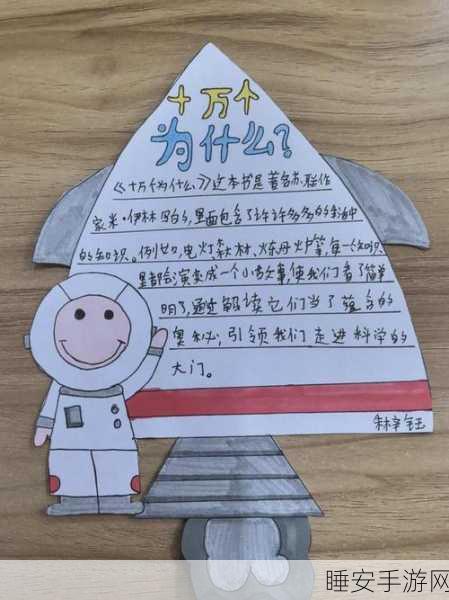 十万个
为什么?
《十万个为什么》这本书是著名苏联作
家米·伊林写的,里面包含了许许多多的生活中
的知识。例如,电灯、森林、炼丹炉等,每一个知识
里都会演变成一个小故事,使我们看了简单
明了,通过解读它们当了蕴含的
奥秘,引领我们走进科学的
大门。
睡安手游网